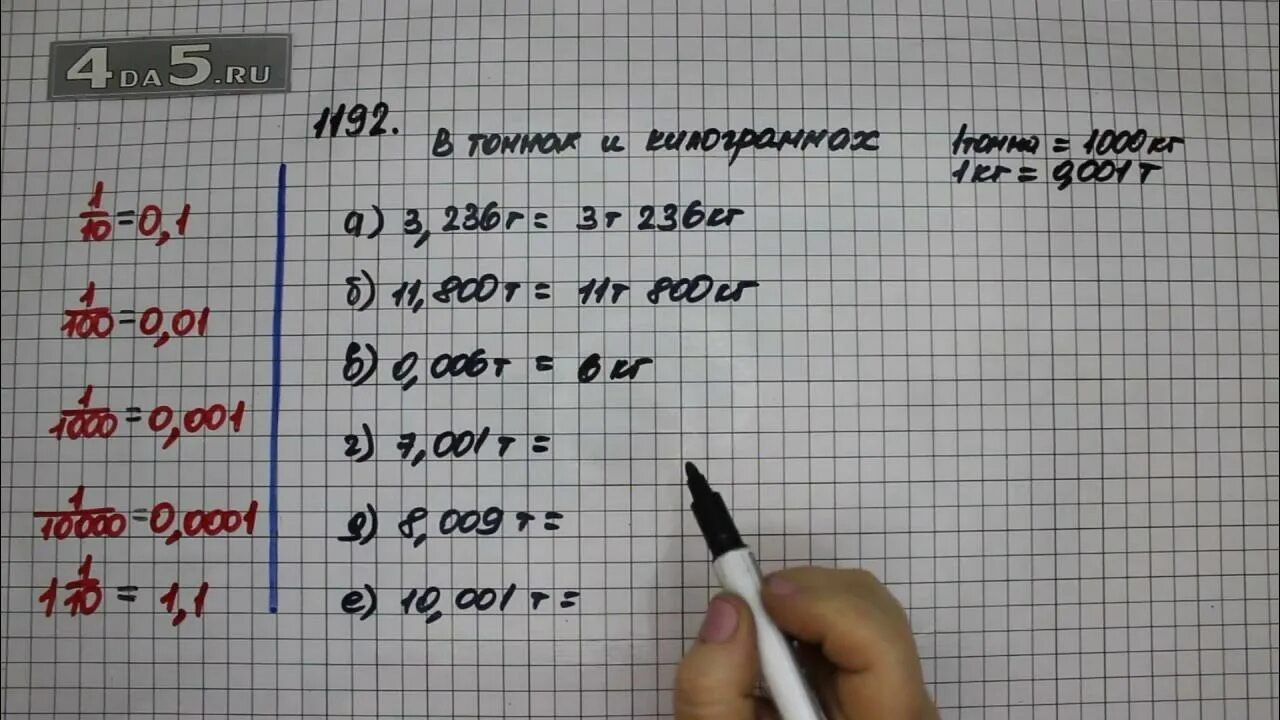 4DA5.RU
1192.
В тоннах и килограммах
1тонна = 1000кг
1кг = 0,001т
1/10 = 0,1
1/100 = 0,01
1/1000 = 0,001
1/10000 = 0,0001
1 1/10 = 1,1
а) 3,236т = 3т 236кг
б) 11,800т = 11т 800кг
в) 0,006т = 6кг
г) 7,001т =
д) 8,009т =
е) 10,001т =